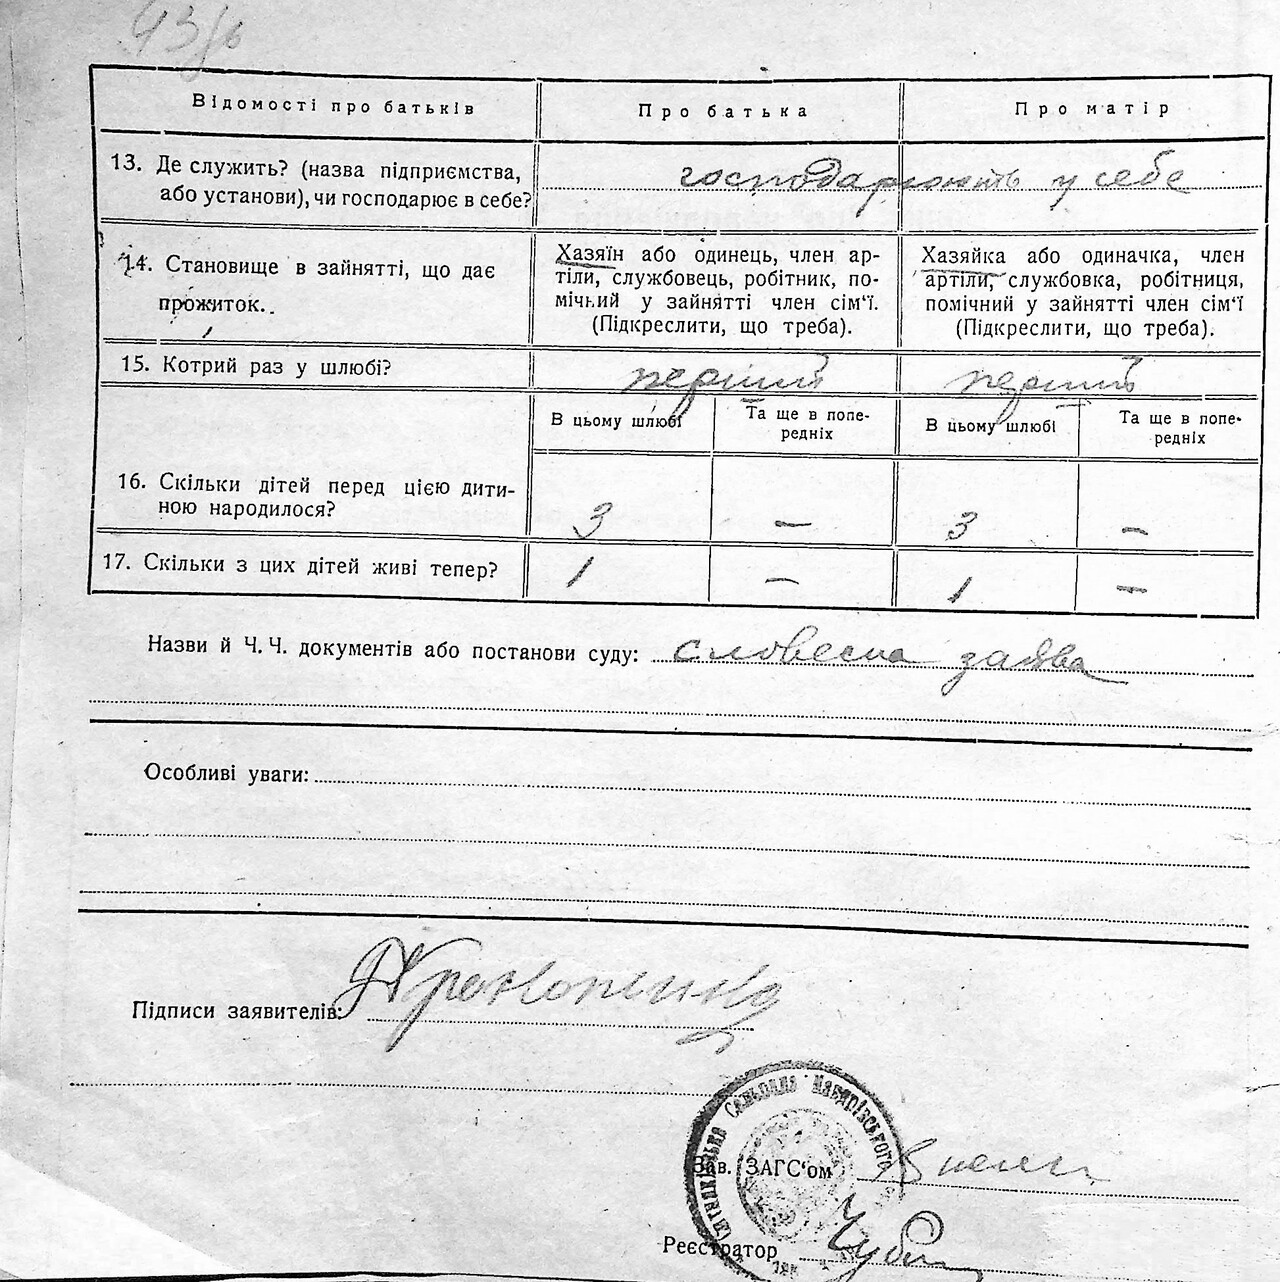 Відомості про батьків Про батька Про матір
13. Де служить? (назва підприємства, або установи), чи господарює в себе? господарюють у себе
14. Становище в зайнятті, що дає
прожиток..
Хазяїн або одинець, член ар-
тіли, службовець, робітник, по-
мічний у зайнятті член сім'ї.
(Підкреслити, що треба).
Хазяйка або одиначка, член
артіли, службовка, робітниця,
помічний у зайнятті член сім'ї
(Підкреслити, що треба).
15. Котрий раз у шлюбі? перший перший
В цьому шлюбі Та ще в попе-
редніх В цьому шлюбі Та ще в попе-
редніх
16. Скільки дітей перед цією дити-
ною народилося? 3 — 3 —
17. Скільки з цих дітей живі тепер? 1 — 1 —
Назви й Ч. Ч. документів або постанови суду: словесна заява
Особливі уваги:
Підписи заявителів:
Сільрада Макарівського
Зав. ЗАГС'ом
Реєстратор